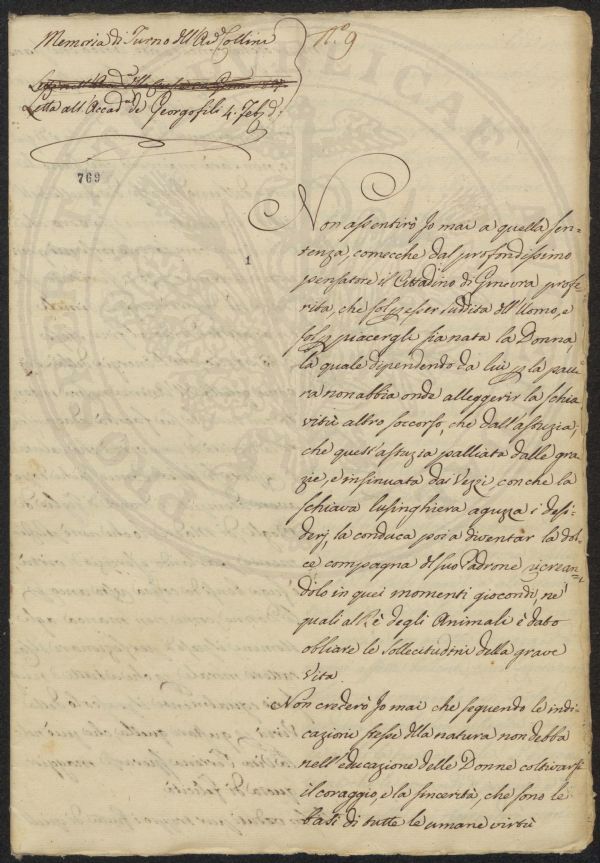 Memoria di Turno dell'Avd. Collini
N.° 9
Letta all'Accad.a de Georgofili 4. Feb.
769
1
Non assentirò Jo mai a quella sen-
tenza, comecche dal profondissimo
pensatore il Cittadino di Ginevra profe
rita, che sol p esser suddita dell'Uomo, e
sol p piacergli sia nata la Donna,
la quale dipendendo da lui p la pau
ra non abbia onde alleggerir la schia
vitù altro soccorso, che dall'astuzia;
che quest'astuzia palliata dalle gra
zie, e insinuata dai Vezzi, con che la
schiava lusinghiera aguzza i desi-
derj, la conduca poi a diventar la dol
ce compagna del suo Padrone ricrean=
dolo in quei momenti giocondi, ne'
quali al Rè degli Animali è dato
obliare le sollecitudini della grave
Vita.
Non crederò Jo mai che seguendo le indi
cazioni stesse della natura non debba
nell'educazione delle Donne coltivarsi
il coraggio, e la sincerità, che sono le
basi di tutte le umane virtù